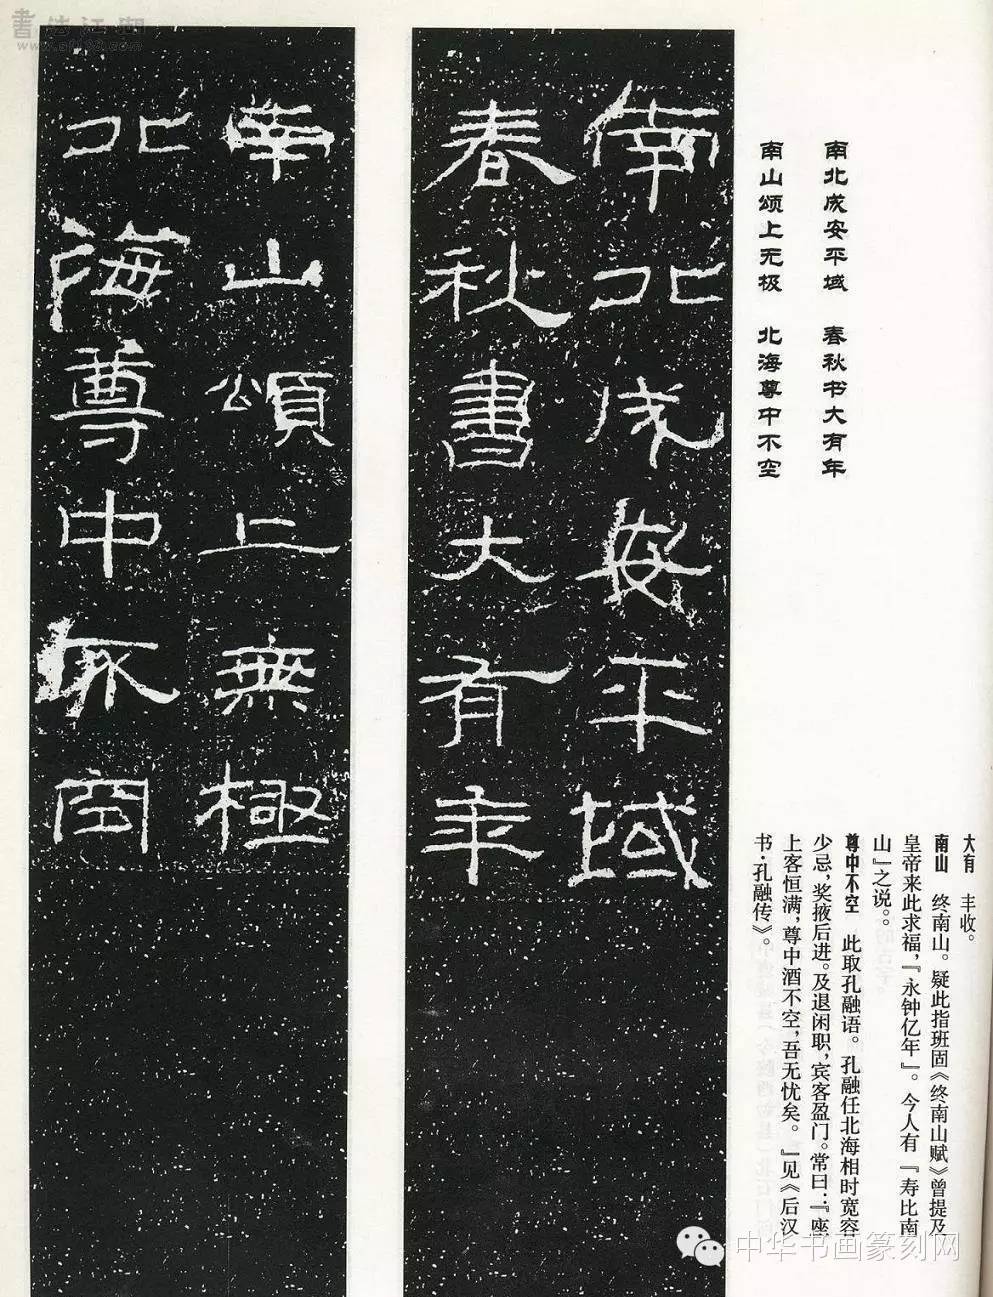 南北成安平域　春秋书大有年
南山颂上无极　北海尊中不空
南北成安平域
春秋書大有年
南山頌上無極
北海尊中不空
大有　丰收。
南山　终南山。疑此指班固《终南山赋》曾提及
皇帝来此求福，『永钟亿年』。今人有『寿比南
山』之说。。
尊中不空　此取孔融语。孔融任北海相时宽容
少忌，奖掖后进。及退闲职，宾客盈门。常曰：『座
上客恒满，尊中酒不空，吾无忧矣。』见《后汉
书·孔融传》。
中华书画篆刻网
書法江湖